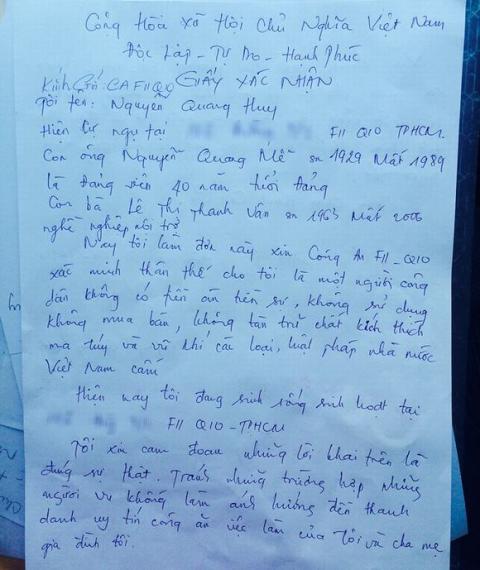 Cộng Hòa Xã Hội Chủ Nghĩa Việt Nam
Độc Lập - Tự Do - Hạnh Phúc
Kính Gởi: CA F11 Q10 GIẤY XÁC NHẬN
Tôi tên: Nguyễn Quang Huy
Hiện cư ngụ tại F11 Q10 TPHCM.
Con ông Nguyễn Quang Mễ sn 1929 Mất 1989
là Đảng viên 40 năm tuổi Đảng
Con bà Lê Thị Thanh Vân sn 1963 Mất 2006
nghề nghiệp nội trợ
Nay tôi làm đơn này xin Công An F11 - Q10
xác minh thân thế cho tôi là một người công
dân không có tiền án tiền sự, không sử dụng
không mua bán, không tàn trữ chất kích thích
ma túy và vũ khí các loại, luật pháp nhà nước
Việt Nam cấm
Hiện nay tôi đang sinh sống sinh hoạt tại
F11 Q10 - TPHCM
Tôi xin cam đoan những lời khai trên là
đúng sự thật. Tránh những trường hợp những
người vu không làm ảnh hưởng đến thanh
danh uy tín công ăn việc làm của Tôi và cha mẹ
gia đình tôi.